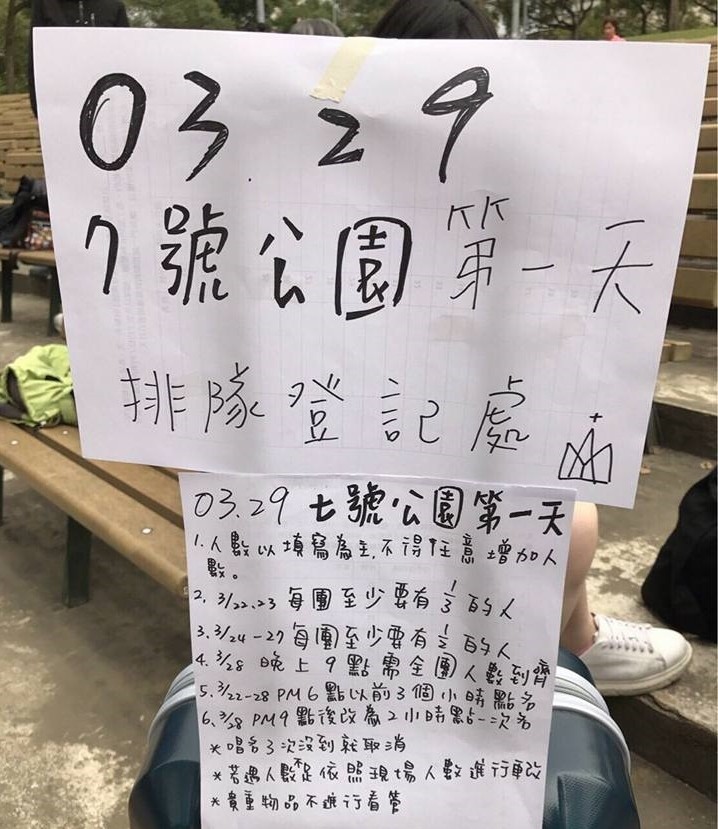 03.29
7號公園第一天
排隊登記處
03.29 七號公園第一天
1.人數以填寫為主.不得任意增加人
數。
2. 3/22.23 每團至少要有 1/3 的人
3. 3/24-27 每團至少要有 1/2 的人
4. 3/28 晚上9點需全團人數到齊
5. 3/22-28 PM6點以前3個小時點名
6. 3/28 PM9點後改為2小時點一次名
*唱名3次沒到就取消
*若遇人數不足依照現場人數進行更改
*貴重物品不進行看管